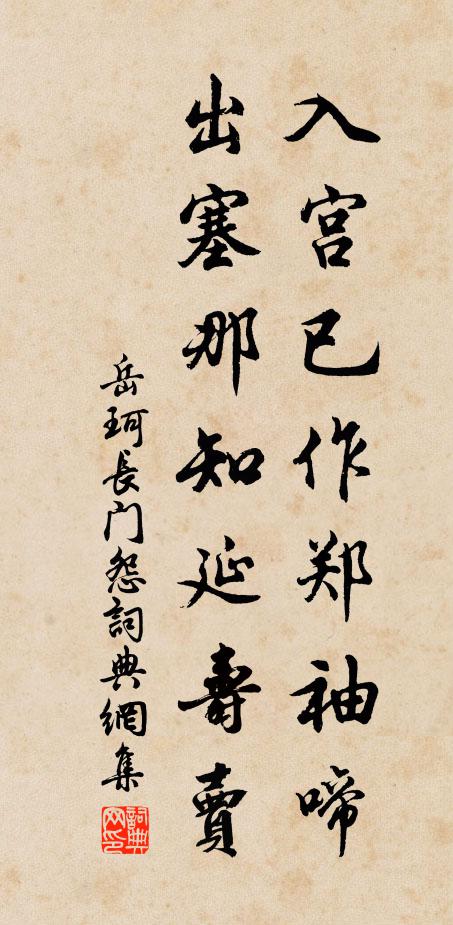 入宫已作郑袖啼
出塞那知延壽賣
岳珂長门怨詞典網集
詞典网印